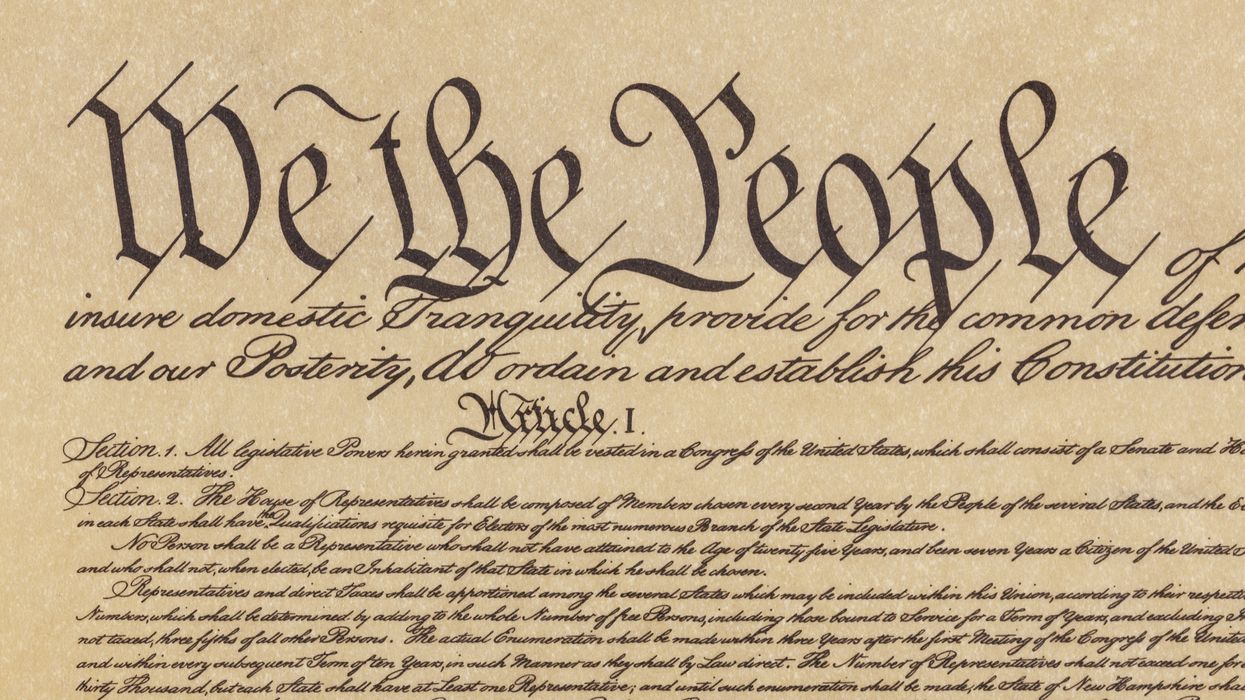 We the People of
insure domestic Tranquility, provide for the common defen
and our Posterity, do ordain and establish this Constitution
Article. I.
Section. 1. All legislative Powers herein granted shall be vested in a Congress of the United States, which shall consist of a Senate and Ho
of Representatives.
Section. 2. The House of Representatives shall be composed of Members chosen every second Year by the People of the several States, and the E
in each State shall have the Qualifications requisite for Electors of the most numerous Branch of the State Legislature.
No Person shall be a Representative who shall not have attained to the Age of twenty five Years, and been seven Years a Citizen of the United S
and who shall not, when elected, be an Inhabitant of that State in which he shall be chosen.
Representatives and direct Taxes shall be apportioned among the several States which may be included within this Union, according to their respecti
Numbers, which shall be determined by adding to the whole Number of free Persons, including those bound to Service for a Term of Years, and excluding In
not taxed, three fifths of all other Persons. The actual Enumeration shall be made within three Years after the first Meeting of the Congress of the United
and within every subsequent Term of ten Years, in such Manner as they shall by Law direct. The Number of Representatives shall not exceed one for
thirty Thousand, but each State shall have at Least one Representative; and until such enumeration shall be made, the State of New Hampshire sha